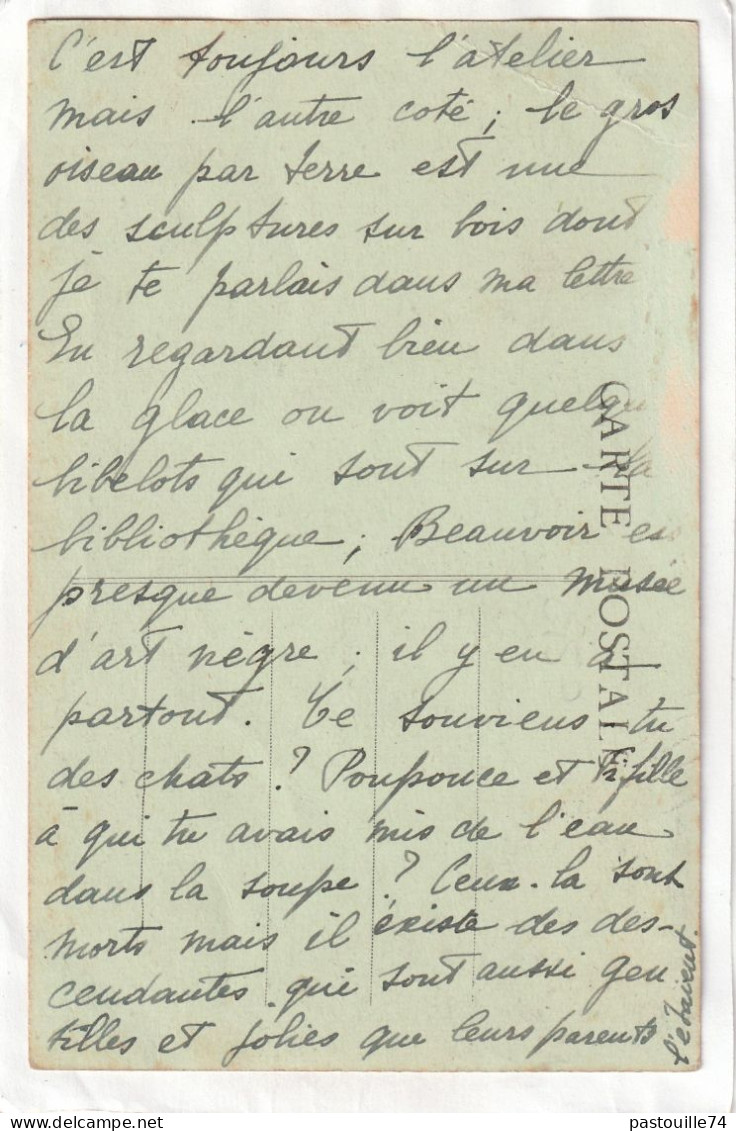 C'est toujours l'atelier
mais l'autre coté ; le gros
oiseau par terre est une
des sculptures sur bois dont
je te parlais dans ma lettre
En regardant bien dans
la glace on voit quelque
bibelots qui sont sur la
bibliothèque ; Beauvoir es
presque devenu un musée
d'art nègre ; il y en a
partout. Te souviens tu
des chats ? Poupouce et Fifille
à qui tu avais mis de l'eau
dans la soupe ? Ceux-la sont
morts mais il éxiste des des-
cendantes qui sont aussi gen
tilles et jolies que leurs parents
l'étaient.
CARTE POSTALE
pastouille74